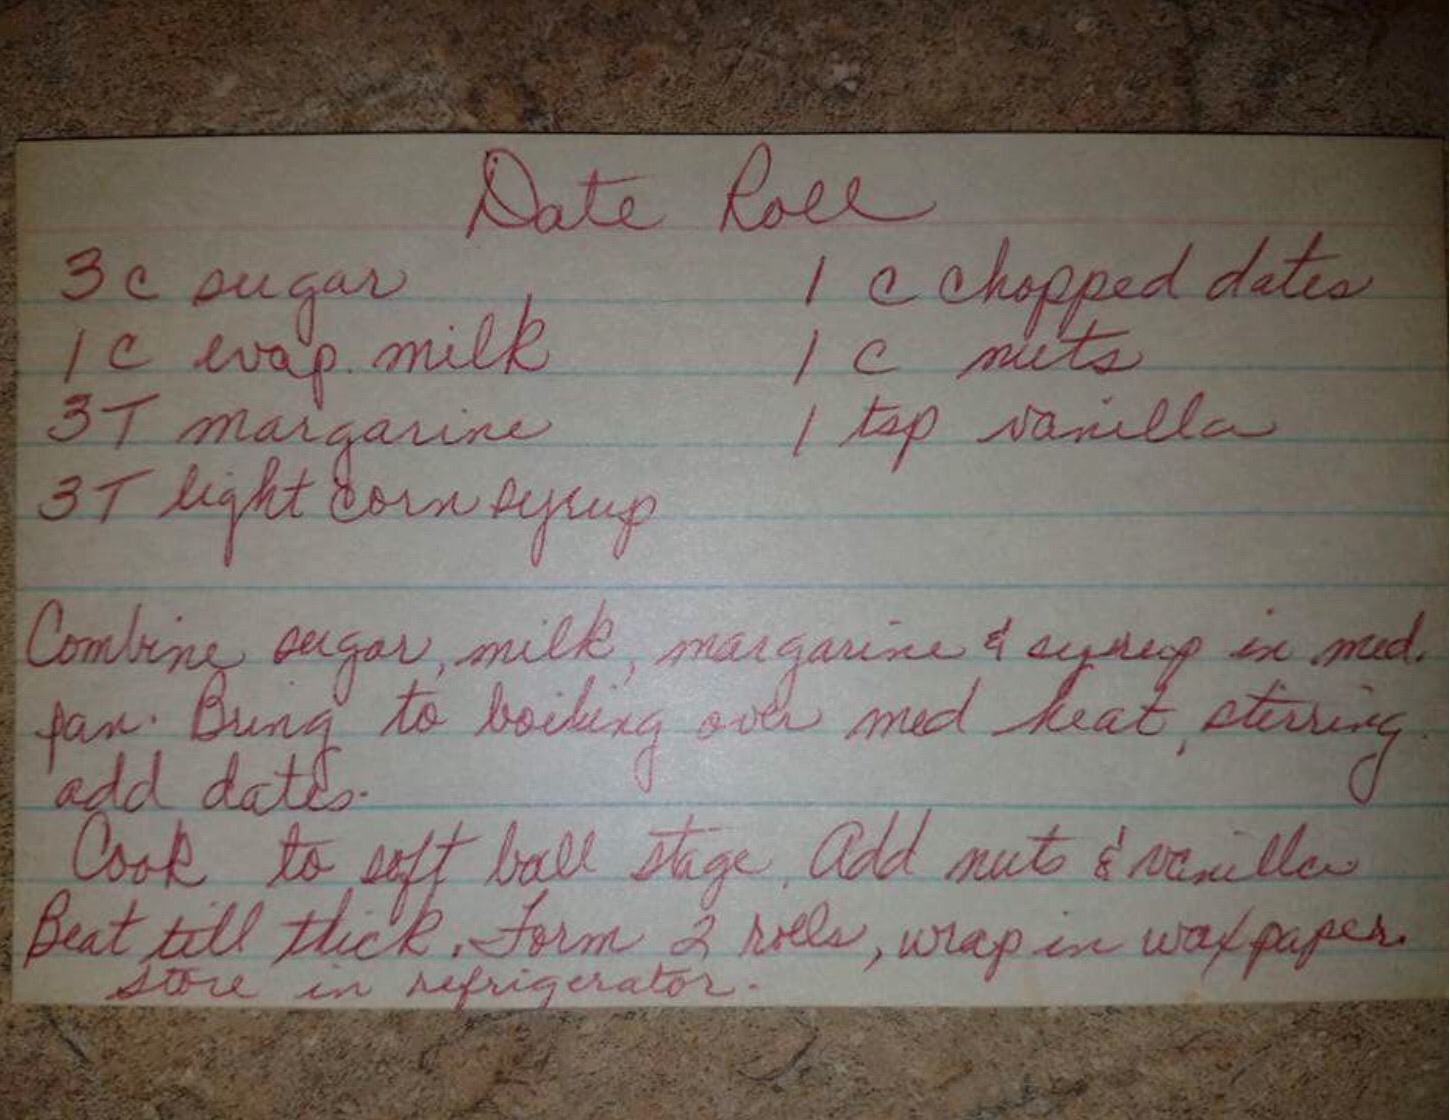 Date Roll
3 c sugar 1 c chopped dates
1 c evap. milk 1 c nuts
3 T margarine 1 tsp vanilla
3 T light corn syrup
Combine sugar, milk, margarine & syrup in med.
pan. Bring to boiling over med heat, stirring.
add dates.
Cook to soft ball stage. Add nuts & vanilla
Beat till thick. Form 2 rolls, wrap in wax paper.
store in refrigerator.